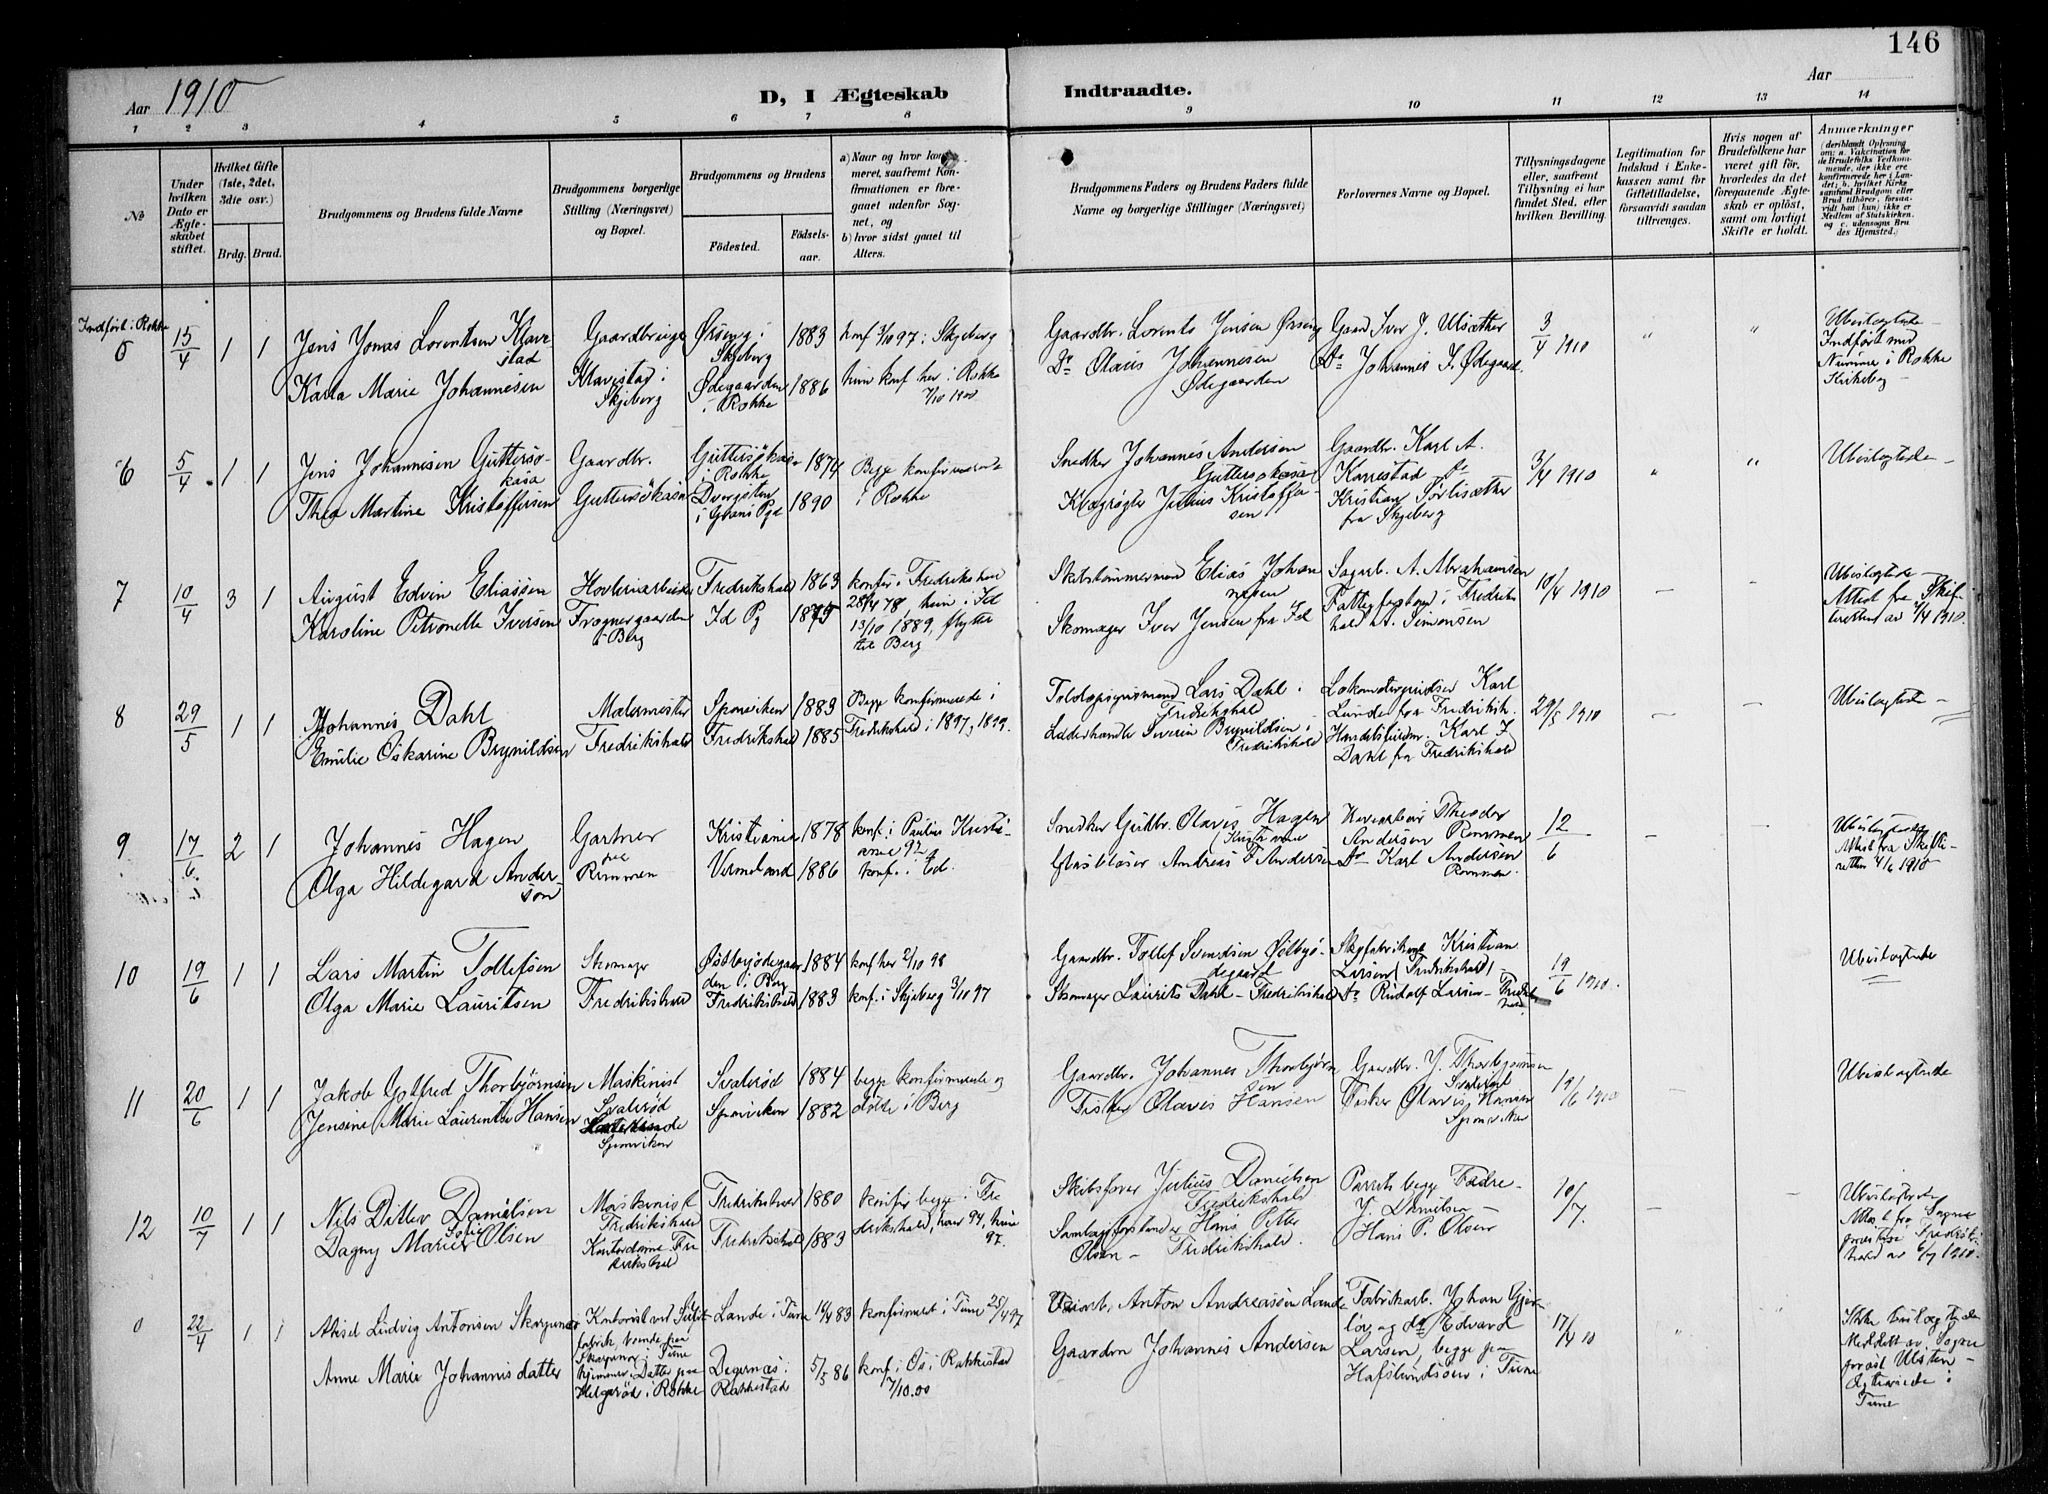 146
Aar 1910
D, I Ægteskab
Indtraadte.
Aar
1 2 3 4 5 6 7 8 9 10 11 12 13 14
No
Under hvilken Dato er Ægteskabet stiftet.
Hvilket Gifte (1ste, 2det, 3die osv.)
Brdg. Brud.
Brudgommens og Brudens fulde Navne
Brudgommens borgerlige Stilling (Næringsvei) og Bopæl.
Brudgommens og Brudens
Fødested.
Fødsels-aar.
a) Naar og hvor konfirmeret, saafremt Konfirmationen er foregaaet udenfor Sognet, og
b) hvor sidst gaaet til Alters.
Brudgommens Faders og Brudens Faders fulde Navne og borgerlige Stillinger (Næringsvei)
Forlovernes Navne og Bopæl.
Tillysningsdagene eller, saafremt Tillysning ei har fundet Sted, efter hvilken Bevilling.
Legitimation for Indskud i Enkekassen samt for Giftetilladelse, forsaavidt saadan tiltrænges.
Hvis nogen af Brudefolkene har været gift før, hvorledes da det foregaaende Ægteskab er opløst, samt om lovligt Skifte er holdt.
Anmærkninger
(deriblandt Oplysning om: a. Vakcination for de Brudefolks Vedkommende, der ikke ere konfirmerede her i Landet; b. hvilket Kirkesamfund Brudgom eller Brud tilhører, forsaavidt han (hun) ikke er Medlem af Statskirken, og c. udensogns Brudes Hjemsted.)
Indført i Rokke
5 15/4 1 1
Jens Jonas Lorentsen Klavestad
Karla Marie Johannesen
Gaardbruger
Klavestad i Skjeberg
Ørseng i Skjeberg 1883
Ødegaarden i Rokke 1886
konf 3/10 97 i Skjeberg
hun konf her i Rokke 7/10 1900
Gaardbr. Lorents Jensen Ørseng
Do Olaus Johannesen Ødegaarden
Gaardb. Iver J. Ulsæther
Do Johannes S. Ødegaard.
3/4 1910
Ubeslægtede - Indført med Numme i Rokke Kirkebog -
6 5/4 1 1
Jens Johannesen Guttersøkasa
Thea Martine Kristoffersen
Gaardbr.
Guttersökasa
Guttersökasa i Rokke 1874
i Glemi Pgd 1890
Begge konfirmerede i Rokke
Snedker Johannes Andersen Guttersøkasa
Julius Kristoffersen
Gaardbr. Karl A. Karrestad
Do Kristian Torlisæther fra Skjeberg
3/4 1910
Ubeslægtede -
7 10/4 3 1
August Edvin Eliassen
Karoline Petronelle Iversen
Høvleriarbeider
Frognergaarden i Berg
Fredrikshald 1863
Id Pg 1875
konfir. i Fredrikshald 28/4 78, hun i Id 13/10 1889, flytte til Berg
Skibstømmermand Elias Johannesen
Skomager Iver Jensen fra Id
Sagarb. A. Abrahamsen
Fattigforstand. i Fredrikshald A. Simonsen
10/4 1910
Ubeslægtede - Attest fra Skifteretten av 7/4 1910.
8 29/5 1 1
Johannes Dahl
Emilie Oskarine Brynildsen
Malermester
Fredrikshald
Sponviken 1883
Fredrikshald 1885
Begge konfirmerede i Fredrikshald i 1897, 1899.
Toldopsynsmand Lars Dahl i Fredrikshald
Læderhandler Severin Brynildsen i Fredrikshald
Lokomotivpudser Karl Lunde fra Fredriksh.
Karl J Dahl fra Fredrikshald
29/5 1910
Ubeslægtede -
9 17/6 2 1
Johannes Hagen
Olga Hildegard Anderson
Gartner
Remmen
Kristiania 1878
Vermeland 1886
konf. i Paulus Kristiania 92
konf. i Ed.
Snedker Gulbr. Olavis Hagen Kristiania
Glasblæser Andreas F Andersen
Theodor Andersen Remmen
Do Karl Andersen Remmen
12/6
Ubeslægtede Attest fra Skifteretten 4/6 1910
10 19/6 1 1
Lars Martin Tollefsen
Olga Marie Lauritsen
Skomager
Fredrikshald
Østbyødegaarden i Berg 1884
Fredrikshald 1883
konf her 2/10 98
konf. i Skjeberg 3/10 97
Gaardbr. Tollef Svendsen Østbyødegaard
Skomager Laurits Dahl - Fredrikshald
Skofabrikant Kristian Larsen (Fredrikshald)
Do Rudolf Larsen - Fredrikshald.
19/6 1910.
Ubeslægtede
11 20/6 1 1
Jakob Gotfred Thorbjørnsen
Jensine Marie Laurentse Hansen
Maskinist
Svalerød
Sponviken
Svalerød 1884
Sponviken 1882
begge konfirmerede og døbte i Berg
Gaardbr. Johannes Thorbjørnsen
Fisker Olavis Hansen
Gaardbr. J. Thorbjørnsen Svalerød
Fisker Olavis Hansen Sponviken
Ubeslægtede
12 10/7 1 1
Nils Ditlev Danielsen
Dagny Marie Sofie Olsen
Maskinist Fredrikshald
Kontordame Fredrikshald
Fredrikshald 1880
Fredrikshald 1883
konfir begge i Fredrikshald, han 94, hun 97.
Skibsfører Julius Danielsen Fredrikshald
Samlagsforstander Hans Petter Olsen - Fredrikshald.
Parrets begge Fædre -
J. Danielsen
Hans P. Olsen
10/7
Ubeslægtede Attest fra Sognepræsten Fredrikshald av 6/7 1910.
0 22/4 1 1
Aksel Ludvig Antonsen Skarpenor
Anne Marie Johannisdatter
Kontorist ved Sulfitfabrik, boende paa Skarpenor i Tune
hjemmev. Datter paa Helgerød i Rokke
Lande i Tune 16/4 83
Degernæs i Rakkestad 5/5 86
konfirmeret i Tune 25/4 97
konf. i Os i Rakkestad 7/10.00
Anton Andreassen Lande
Gaardbr Johannes Andersen
Fabrikarb. Johan Gjerløv og do Edvard Larsen, begge paa Hafslundsøen i Tune
17/4 10
Ikke beslægtede. Meddelt av Sogneprest Ulsten - i Tune